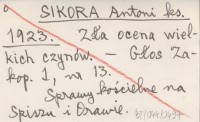 SIKORA Antoni ks.
1923. Zła ocena wiel-
kich czynów. – Głos Za-
kop. 1, nr 13.
Sprawy kościelne na
Spiszu i Orawie.